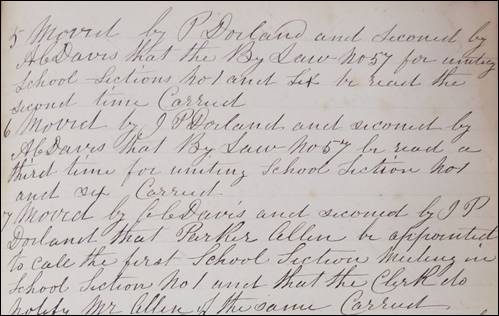 5 Moved by P Dorland and seconed by
A C Davis that the By Law No 57 for uniting
School Sections No 1 and six be read the
second time Carried
6 Moved by J P Dorland and seconed by
A C Davis that By Law No 57 be read a
third time for uniting School Section No 1
and six Carried
7 Moved by A C Davis and seconed by J P
Dorland that Parker Allen be appointed
to cale the first School Section Meeting in
School Section No 1 and that the Clerk do
notify Mr Allen of the same Carried